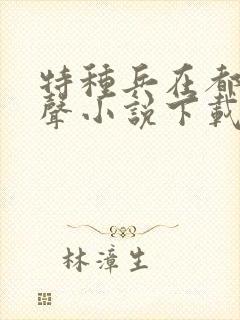 特種兵在都
聲小說下載
林漳生